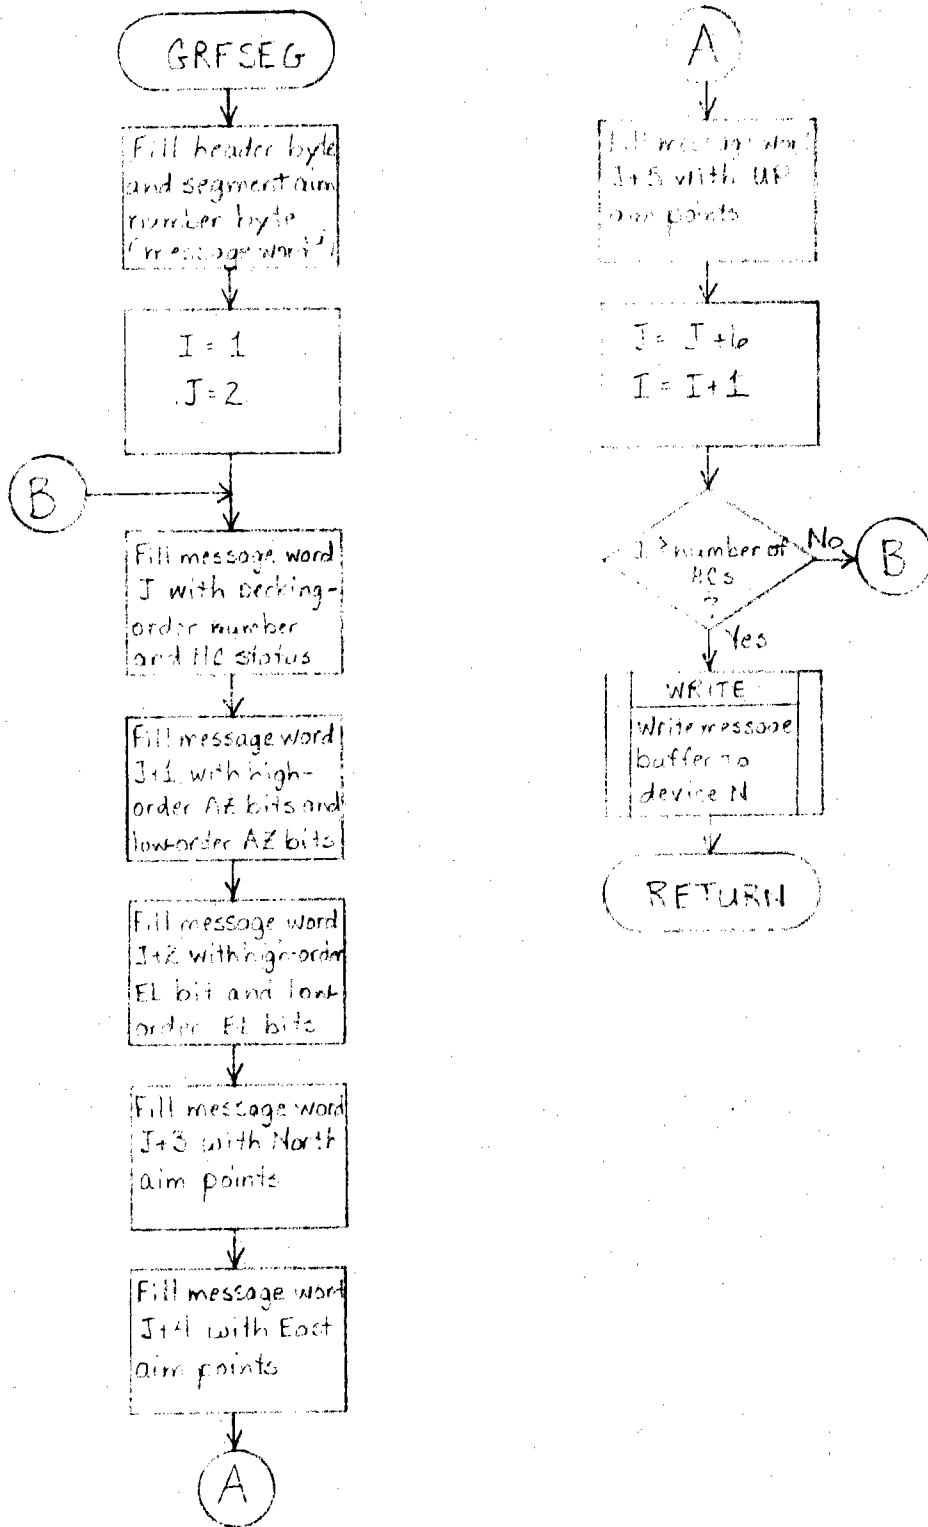 GRFSEG
Fill header byte
and segment aim
number byte
(message word 1)
I = 1
J = 2
B
Fill message word
J with Decking-
order number
and HC status
Fill message word
J+1 with high-
order AZ bits and
low-order AZ bits
Fill message word
J+2 with high-order
EL bit and low-
order EL bits
Fill message word
J+3 with North
aim points
Fill message word
J+4 with East
aim points
A
A
Fill message word
J+5 with UP
aim points
J = J+6
I = I+1
I > number of
HCs
?
No
B
Yes
WRITE
Write message
buffer to
device N
RETURN